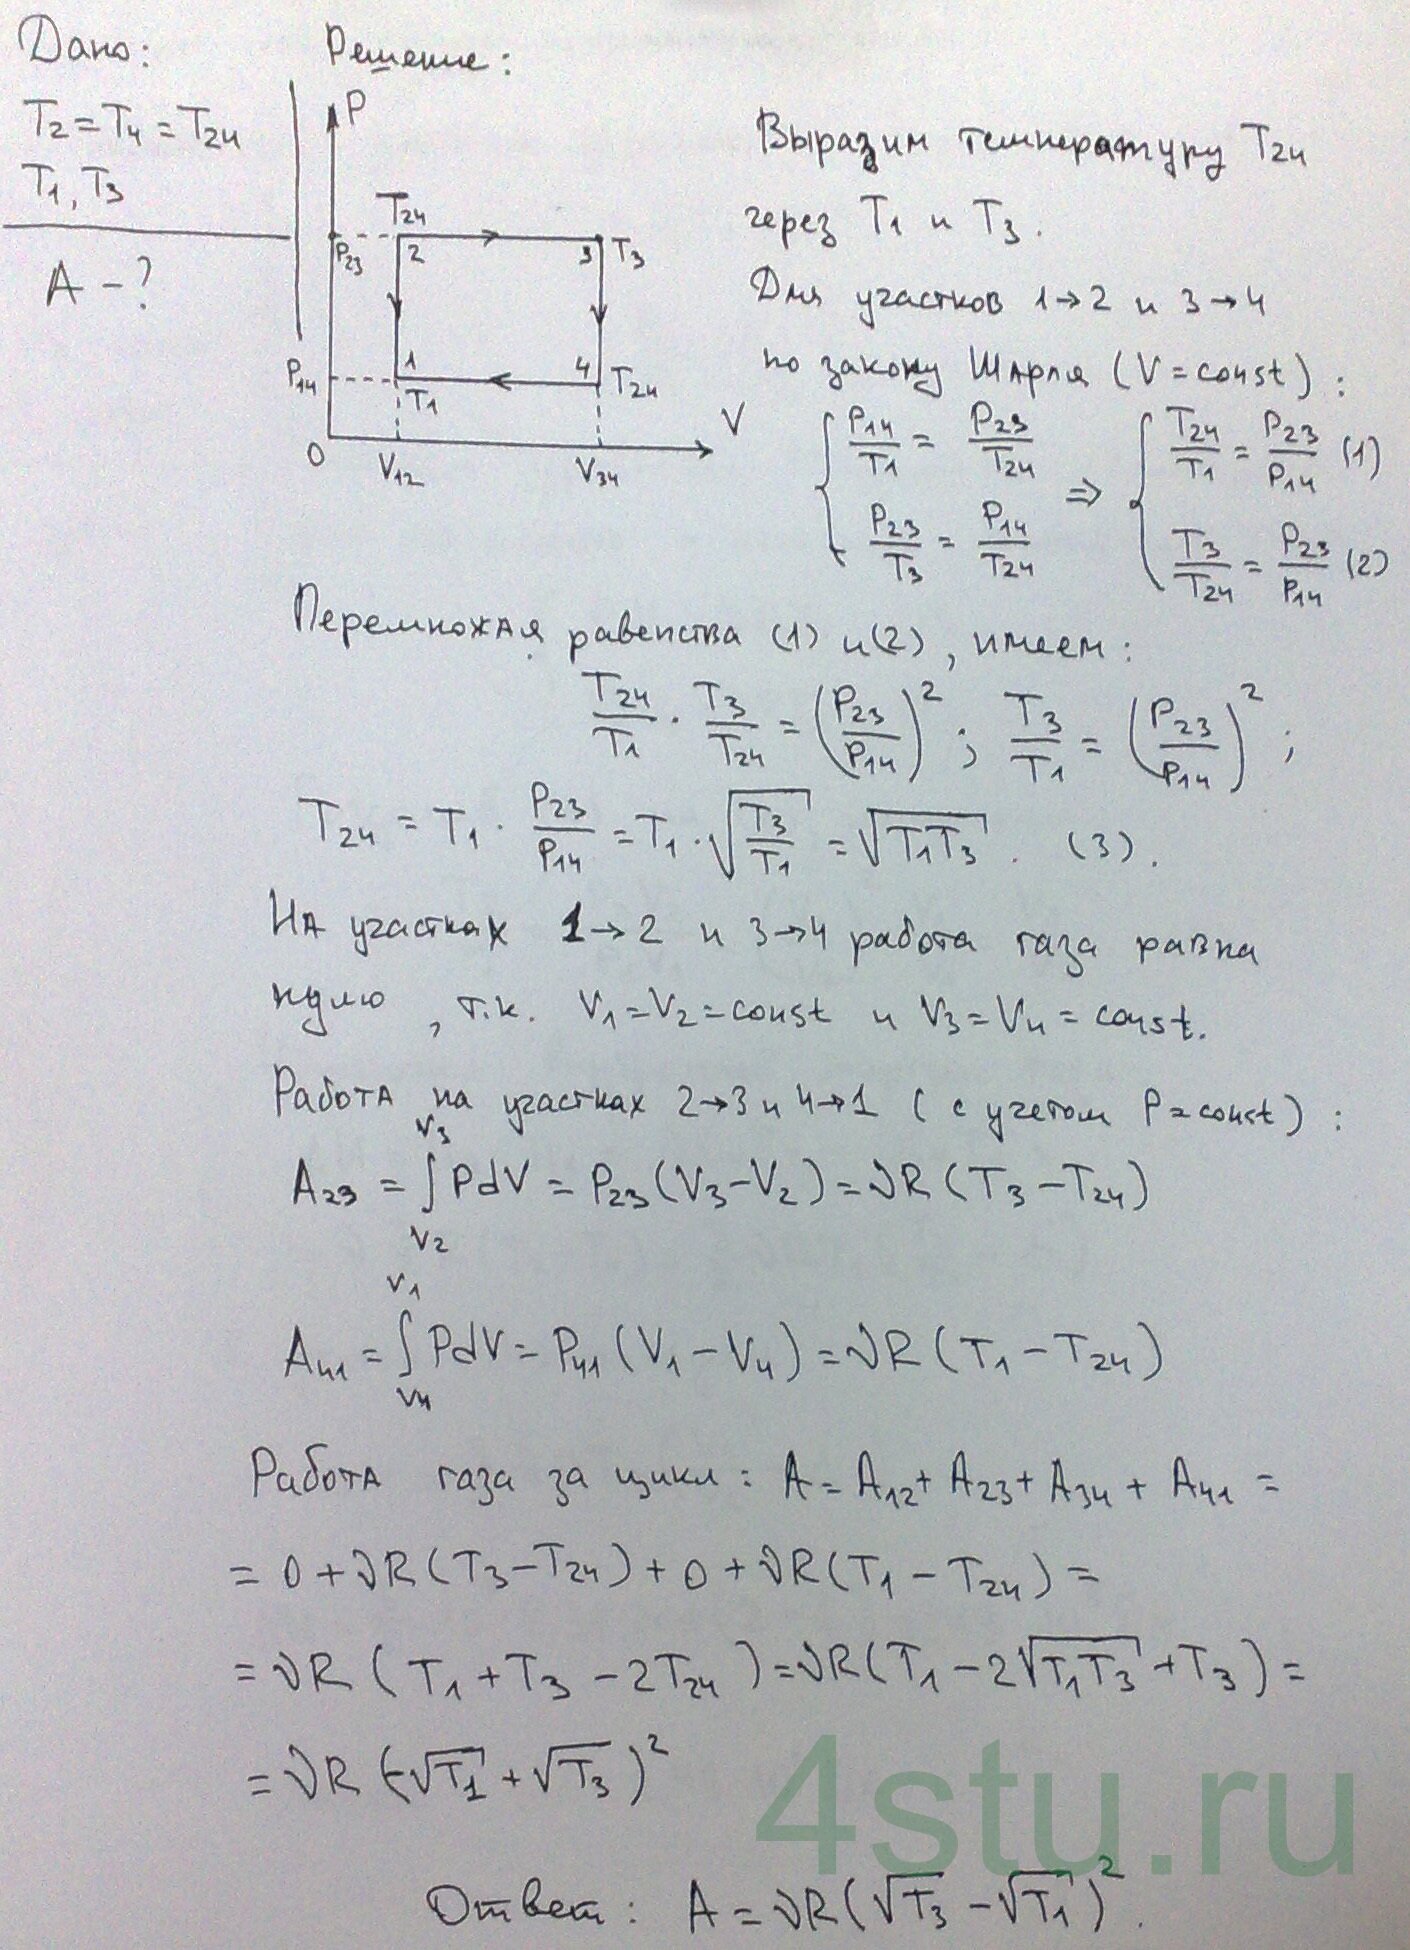 Дано:
T2 = T4 = T24
T1, T3
A - ?
Решение:
P
T24
P23
2
3
T3
P14
1
T1
4
T24
V
0
V12
V34
Выразим температуру T24
через T1 и T3.
Для участков 1→2 и 3→4
по закону Шарля (V = const):
P14/T1 = P23/T24 ⇒ T24/T1 = P23/P14 (1)
P23/T3 = P14/T24 T3/T24 = P23/P14 (2)
Перемножая равенства (1) и (2), имеем:
T24/T1 · T3/T24 = (P23/P14)²; T3/T1 = (P23/P14)²;
T24 = T1 · P23/P14 = T1 · √(T3/T1) = √(T1T3). (3).
На участках 1→2 и 3→4 работа газа равна
нулю, т.к. V1 = V2 = const и V3 = V4 = const.
Работа на участках 2→3 и 4→1 (с учетом P = const):
A23 = ∫V2V3 PdV = P23(V3 - V2) = νR(T3 - T24)
A41 = ∫V4V1 PdV = P41(V1 - V4) = νR(T1 - T24)
Работа газа за цикл: A = A12 + A23 + A34 + A41 =
= 0 + νR(T3 - T24) + 0 + νR(T1 - T24) =
= νR(T1 + T3 - 2T24) = νR(T1 - 2√(T1T3) + T3) =
= νR(-√T1 + √T3)²
4stu.ru
Ответ: A = νR(√T3 - √T1)².